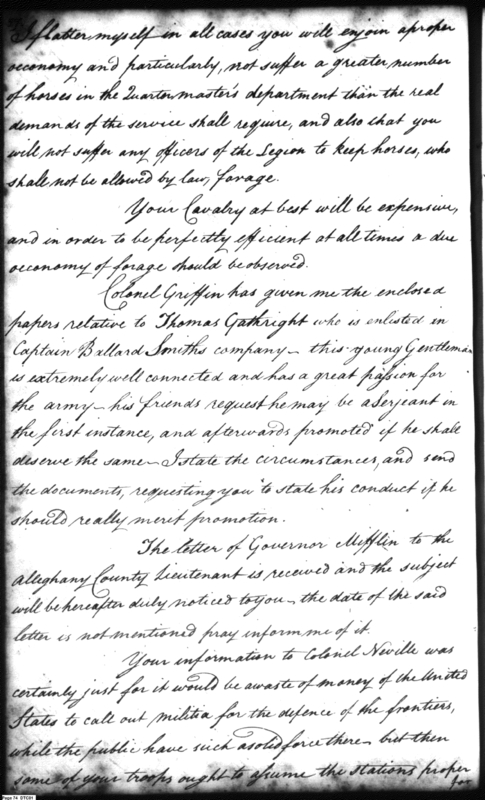 I flatter myself in all cases you will enjoin a proper
oeconomy and particularly, not suffer a greater number
of horses in the Quarter masters department than the real
demands of the service shall require, and also that you
will not suffer any officers of the Legion to keep horses, who
shall not be allowed by law, forage.
Your Cavalry at best will be expensive,
and in order to be perfectly efficient at all times a due
oeconomy of forage should be observed.
Colonel Griffin has given me the enclosed
papers relative to Thomas Gathright who is enlisted in
Captain Ballard Smiths company – this young Gentleman
is extremely well connected and has a great passion for
the army – his friends request he may be a Serjeant in
the first instance, and afterwards promoted if he shall
deserve the same – I state the circumstances, and send
the documents, requesting you to state his conduct if he
should really merit promotion.
The letter of Governor Mifflin to the
Alleghany County Lieutenant is received and the subject
will be hereafter duly noticed to you – the date of the said
letter is not mentioned pray inform me of it.
Your information to Colonel Neville was
certainly just for it would be a waste of money of the United
States to call out militia for the defence of the frontiers,
while the public have such a solid force there – but then
some of your troops ought to assume the stations proper
for
Page 74 DTC01